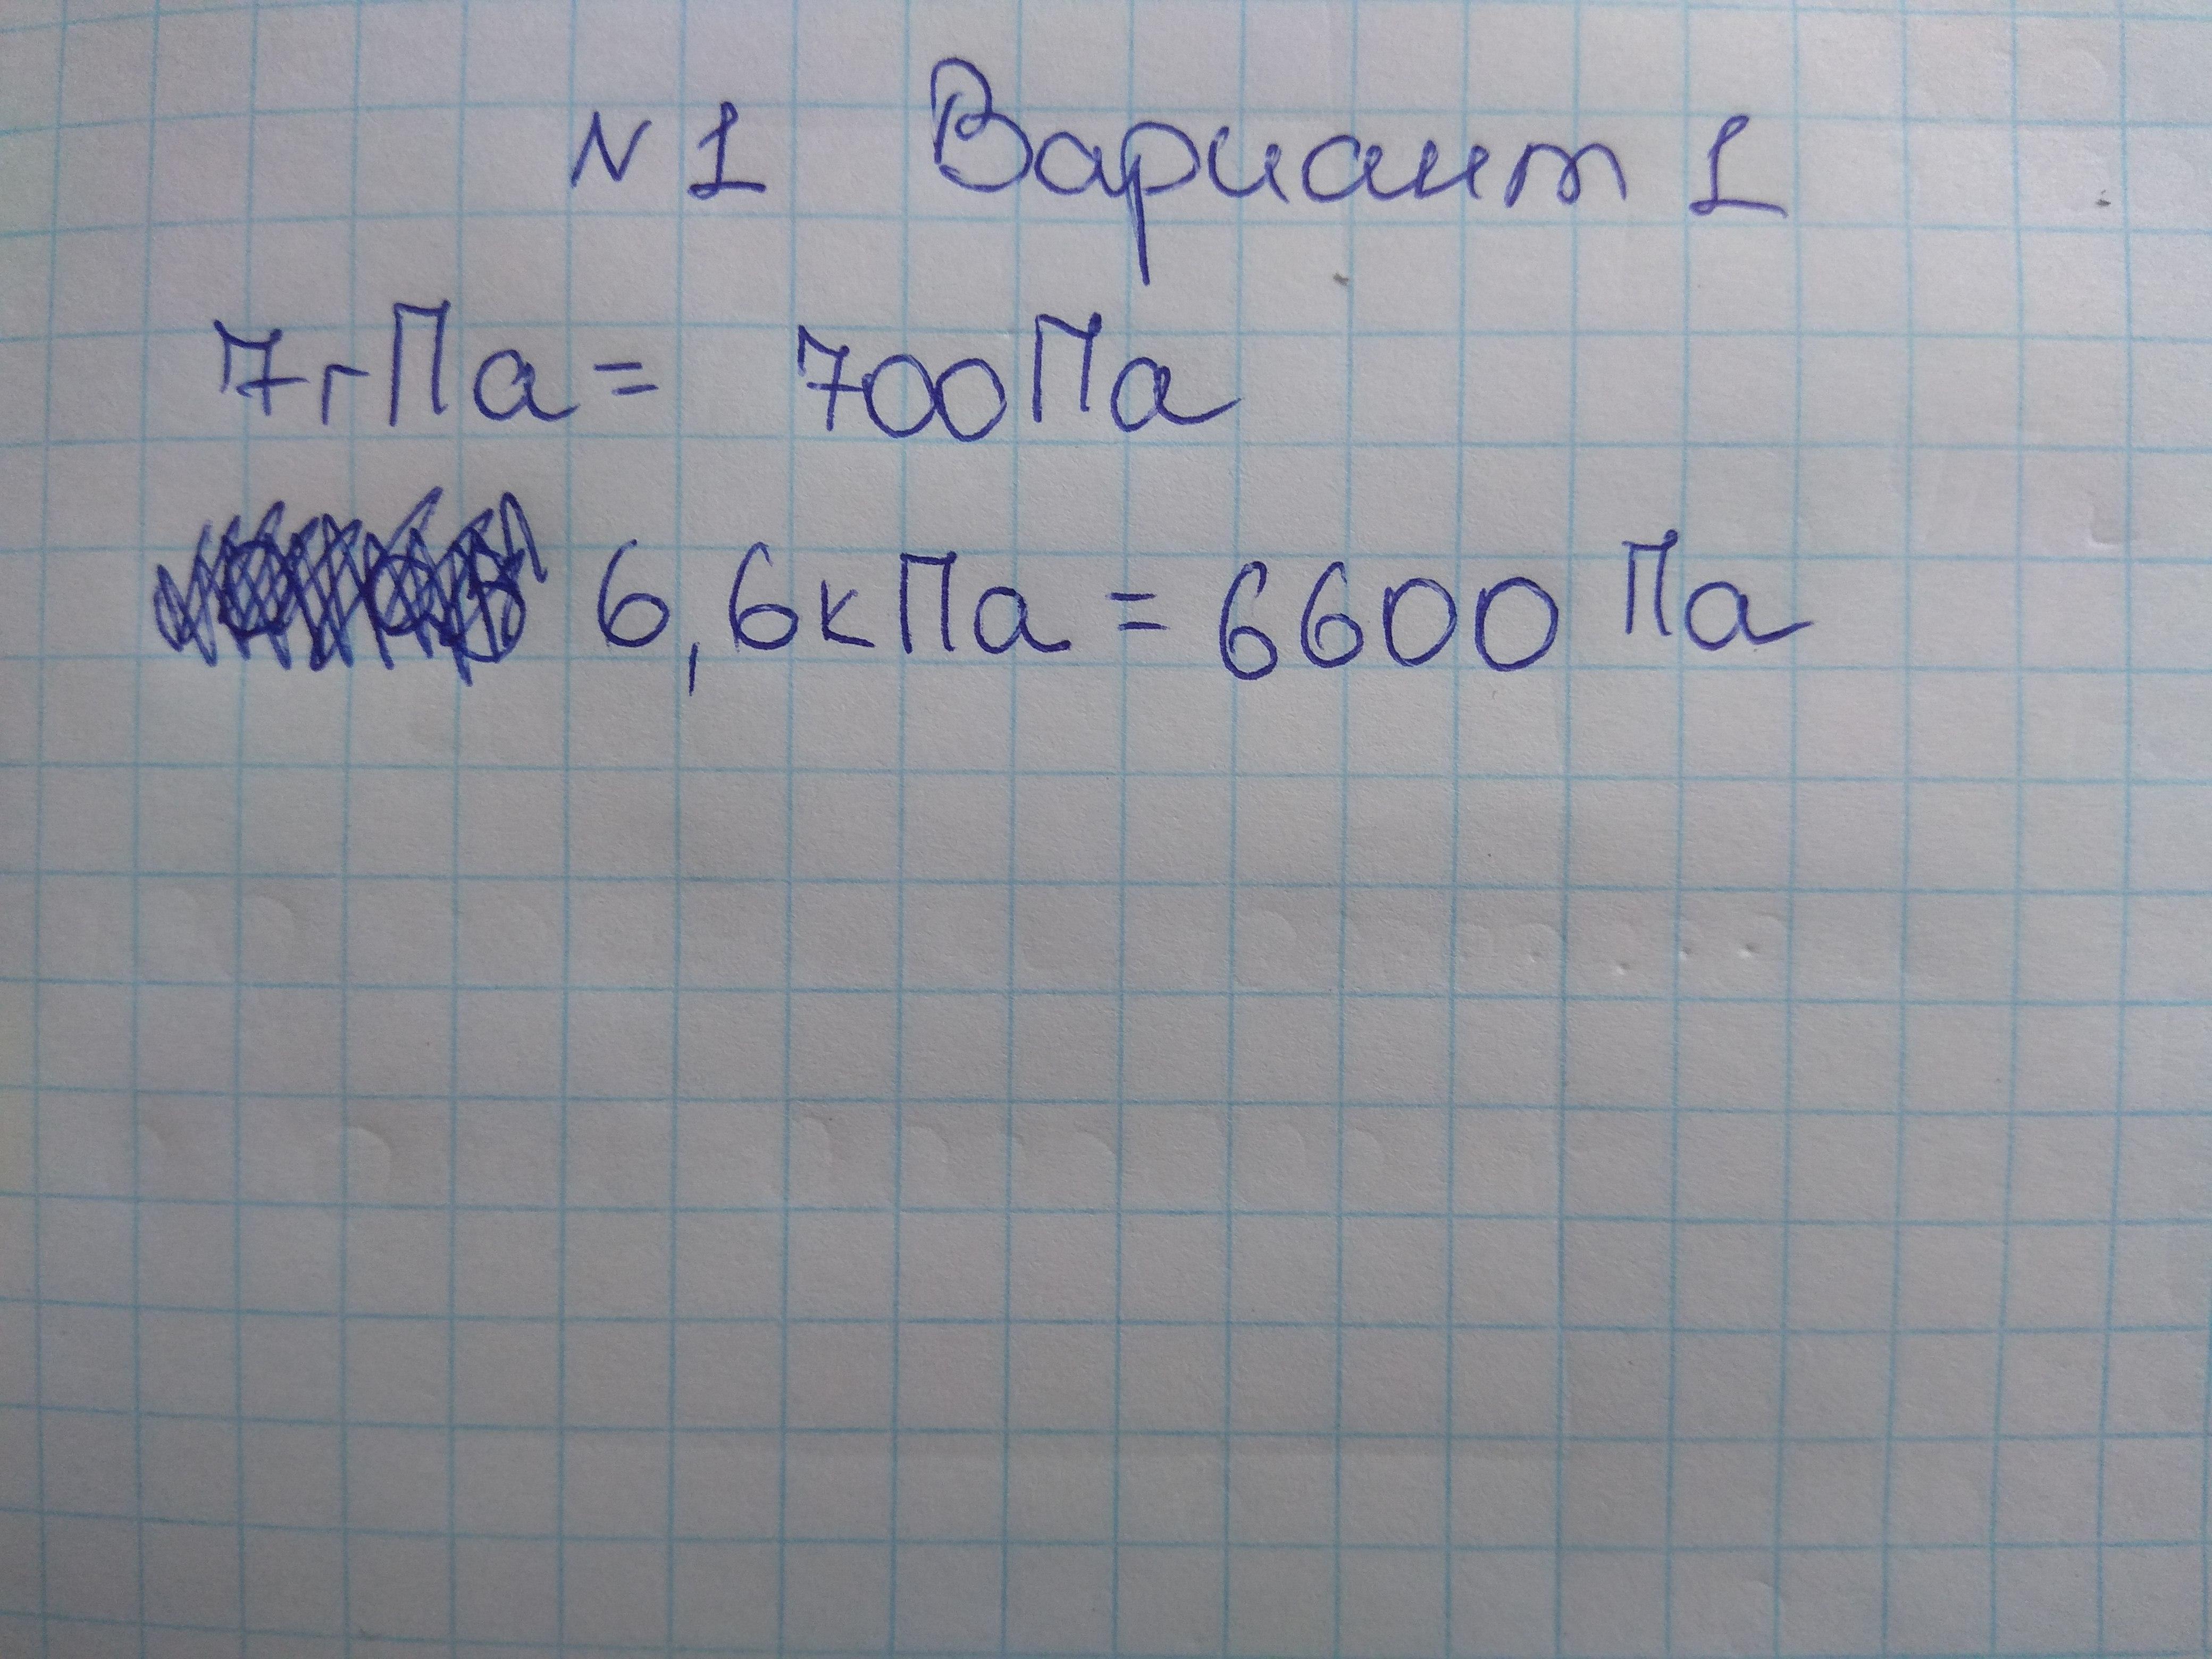 N 1 Вариант 1
7гПа = 700Па
6,6кПа = 6600 Па